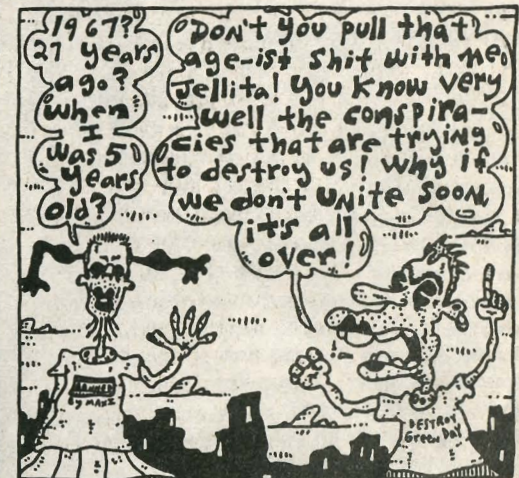 1967?
27 years
ago?
when
I
was 5
years
old?
Don't you pull that
age-ist shit with me,
Jellita! You know very
well the conspira-
cies that are trying
to destroy us! Why if
we don't UNite SOON,
it's all
over!
BANNED
by MAXI
!
DESTROY
Green DAY